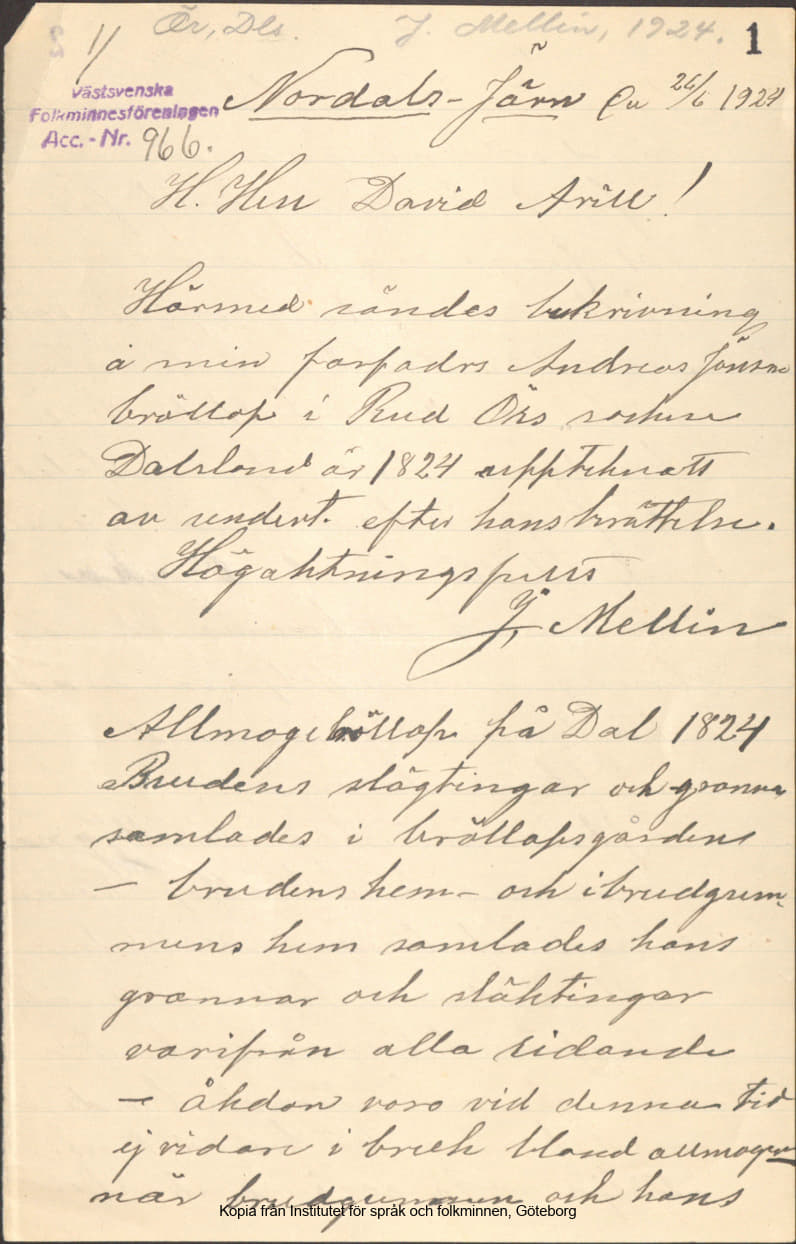 1/ Ör, Dls. J. Mellin, 1924. 1
Västsvenska
Folkminnesföreningen
Acc. - Nr. 966.
Nordals-Järn Den 26/6 1924
H. Herr David Arill!
Härmed sändes beskrivning
å min farfadrs Andreas Jönsons
bröllop i Rud Örs socken
Dalsland år 1824 upptecknatt
av undert. efter hans berättelse.
Högaktningsfullt
J. Mellin
Allmogebröllop på Dal 1824
Brudens slägtingar och granna
samlades i bröllopsgården
— brudens hem — och i brudgum-
mens hem samlades hans
grannar och släktingar
varifrån alla ridande
— åkdon voro vid denna tid
ej vidare i bruk bland allmogen
när brudgummen och hans
Kopia från Institutet för språk och folkminnen, Göteborg